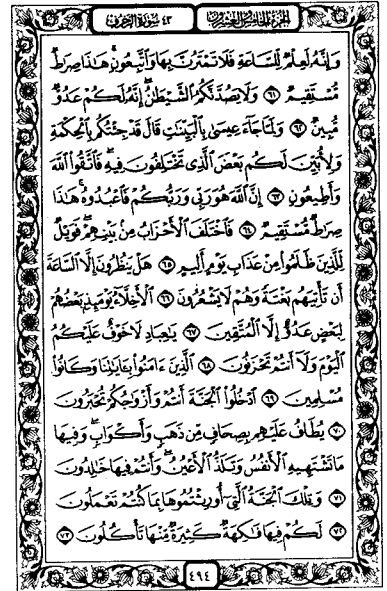 الجزء الخامس والعشرون ٤٣ سورة الزخرف
وَإِنَّهُۥ لَعِلْمٌ لِّلسَّاعَةِ فَلَا تَمْتَرُنَّ بِهَا وَٱتَّبِعُونِ ۚ هَٰذَا صِرَٰطٌ
مُّسْتَقِيمٌ ٦١ وَلَا يَصُدَّنَّكُمُ ٱلشَّيْطَٰنُ ۖ إِنَّهُۥ لَكُمْ عَدُوٌّ
مُّبِينٌ ٦٢ وَلَمَّا جَآءَ عِيسَىٰ بِٱلْبَيِّنَٰتِ قَالَ قَدْ جِئْتُكُم بِٱلْحِكْمَةِ
وَلِأُبَيِّنَ لَكُم بَعْضَ ٱلَّذِى تَخْتَلِفُونَ فِيهِ ۖ فَٱتَّقُوا۟ ٱللَّهَ
وَأَطِيعُونِ ٦٣ إِنَّ ٱللَّهَ هُوَ رَبِّى وَرَبُّكُمْ فَٱعْبُدُوهُ ۚ هَٰذَا
صِرَٰطٌ مُّسْتَقِيمٌ ٦٤ فَٱخْتَلَفَ ٱلْأَحْزَابُ مِنۢ بَيْنِهِمْ ۖ فَوَيْلٌ
لِّلَّذِينَ ظَلَمُوا۟ مِنْ عَذَابِ يَوْمٍ أَلِيمٍ ٦٥ هَلْ يَنظُرُونَ إِلَّا ٱلسَّاعَةَ
أَن تَأْتِيَهُم بَغْتَةً وَهُمْ لَا يَشْعُرُونَ ٦٦ ٱلْأَخِلَّآءُ يَوْمَئِذٍۭ بَعْضُهُمْ
لِبَعْضٍ عَدُوٌّ إِلَّا ٱلْمُتَّقِينَ ٦٧ يَٰعِبَادِ لَا خَوْفٌ عَلَيْكُمُ
ٱلْيَوْمَ وَلَآ أَنتُمْ تَحْزَنُونَ ٦٨ ٱلَّذِينَ ءَامَنُوا۟ بِـَٔايَٰتِنَا وَكَانُوا۟
مُسْلِمِينَ ٦٩ ٱدْخُلُوا۟ ٱلْجَنَّةَ أَنتُمْ وَأَزْوَٰجُكُمْ تُحْبَرُونَ
٧٠ يُطَافُ عَلَيْهِم بِصِحَافٍ مِّن ذَهَبٍ وَأَكْوَابٍ ۖ وَفِيهَا
مَا تَشْتَهِيهِ ٱلْأَنفُسُ وَتَلَذُّ ٱلْأَعْيُنُ ۖ وَأَنتُمْ فِيهَا خَٰلِدُونَ
٧١ وَتِلْكَ ٱلْجَنَّةُ ٱلَّتِىٓ أُورِثْتُمُوهَا بِمَا كُنتُمْ تَعْمَلُونَ
٧٢ لَكُمْ فِيهَا فَٰكِهَةٌ كَثِيرَةٌ مِّنْهَا تَأْكُلُونَ ٧٣
٤٩٤